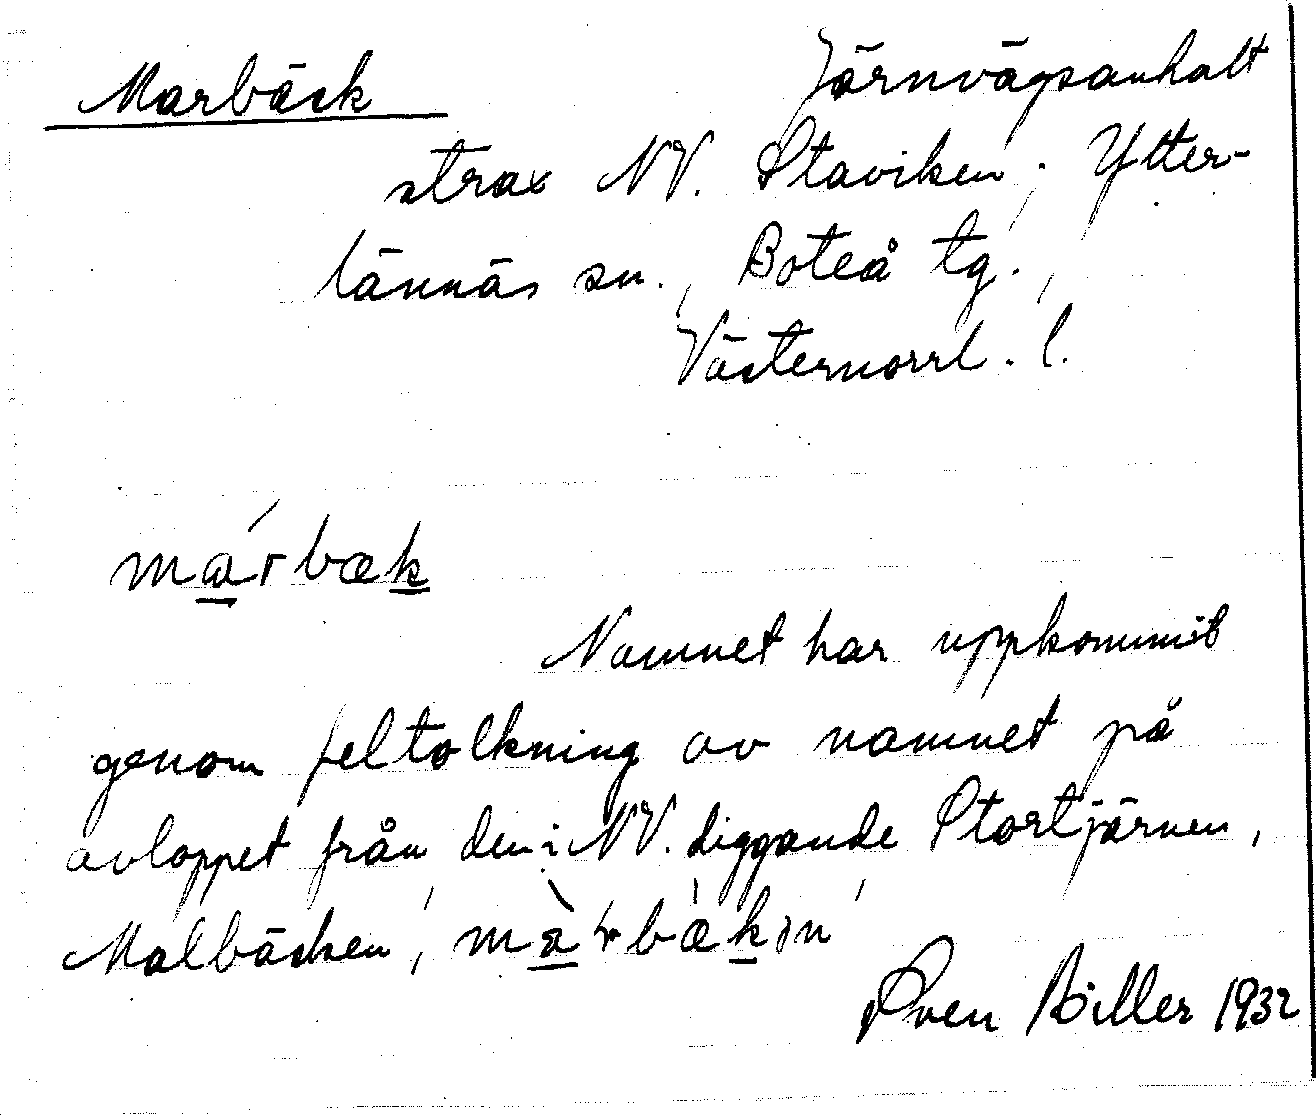 Marbäck Järnvägsanhalt
strax NV. Staviken, Ytter-
lännäs sn., Boteå tg.,
Västernorrl. l.
márbæk
Namnet har uppkommit
genom feltolkning av namnet på
avloppet från den i NV. liggande Stortjärnen,
Malbäcken,
Sven Böller 1932